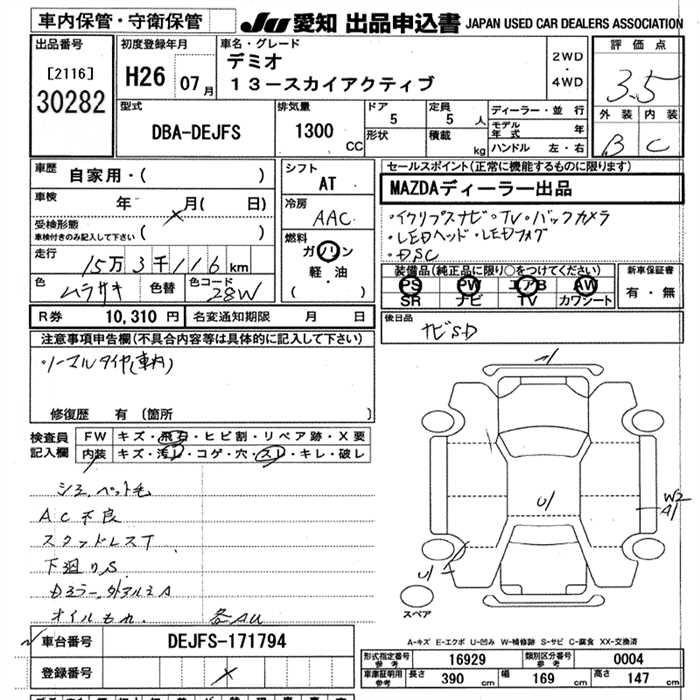 車内保管・守衛保管
JU 愛知 出品申込書 JAPAN USED CAR DEALERS ASSOCIATION
出品番号
[2116]
30282
初度登録年月
H26 07月
車名・グレード
デミオ
13-スカイアクティブ
2WD
・
4WD
評価点
3.5
外装 内装
B C
型式
DBA-DEJFS
排気量
1300 CC
ドア
5
形状
定員
5 人
積載
kg
ディーラー・並行
モデル年式 年
ハンドル 左・右
車歴
自家用・( )
車検
年 月(日)
受検形態
車検付きのみ記入して下さい ( )
走行
15万3千116km
色
ムラサキ
色替
色コード
28W
シフト
AT
冷房
AAC
燃料
ガソリン
軽・油
( )
セールスポイント(正常に機能するものに限ります)
MAZDAディーラー出品
・イクリプスナビ・TV・バックカメラ
・LEDヘッド・LEDフォグ
・DSC
装備品(純正品に限り○をつけてください)
PS PW エアB AW
SR ナビ TV カワシート
新車保証書
有・無
R券 10,310 円
名変通知期限 月 日
後日品
ナビSD
注意事項申告欄(不具合内容等は具体的に記入して下さい)
・ノーマルタイヤ(車内)
修復歴 有(箇所
検査員記入欄
FW キズ・飛石・ヒビ割・リペア跡・X要
内装 キズ・汚レ・コゲ・穴・スレ・キレ・破レ
シミ、ペット毛
AC不良
スタッドレスT
下廻りS
Dミラー外アルミA
オイルもれ 各AU
A1
U1
W2
A1
U1
スペア
A-キズ E-エクボ U-凹み W-補修跡 S-サビ C-腐食 XX-交換済
車台番号 DEJFS-171794
登録番号
形式指定番号 参考 16929
類別区分番号 参考 0004
車庫証明用 参考
長さ 390 cm
幅 169 cm
高さ 147 cm